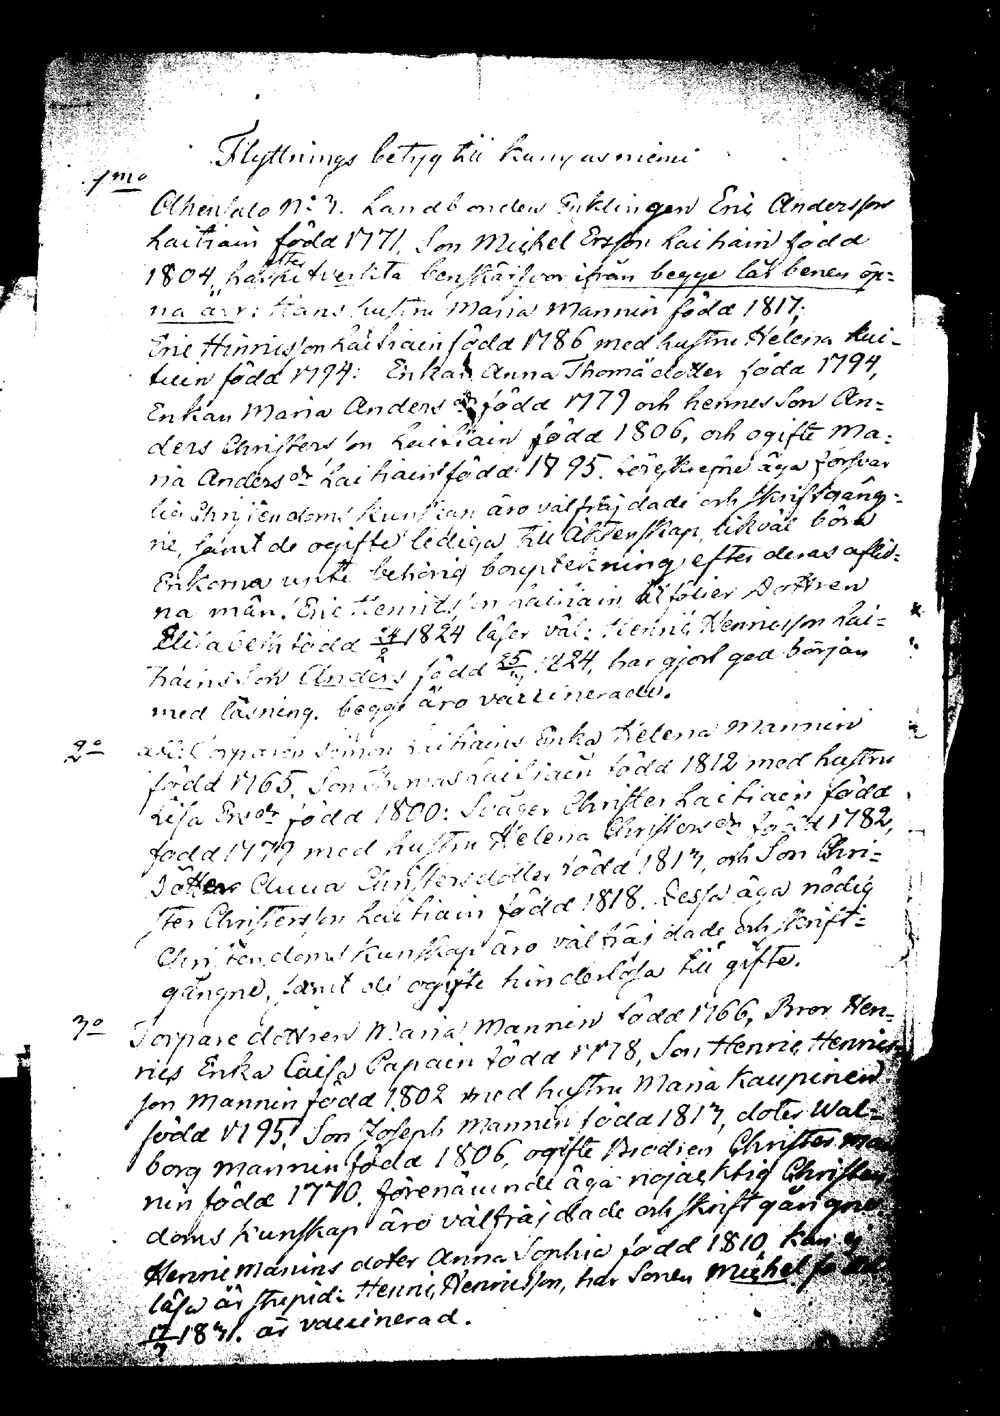 Flyttnings betyg till Kangasniemi
1mo
Ahensalo No 7. Landbonden Enklingen Eric Andersson
Laitiain född 1771, Son Michel Ersson Laitiain född
1804, har efter venlita benskärfvor ifrån begge lår benen öp=
na ärr: Hans hustru Maria Mannin född 1817;
Eric Hinricsson Laitiain född 1786 med hustru Helena Kui-
tuin född 1794: Enkan Anna Thomädotter född 1794,
Enkan Maria Andersdr född 1779 och hennes Son An=
ders Christersson Laitiain född 1806, och ogifte Ma=
ria Andersdr Laitiain född 1795. äga försvar
lig Christendoms kunskap äro välfräjdade och skriftgång=
ne, samt de ogifte lediga till Äktenskap, likväl böra
Enkorna upte behörig bouptekning efter deras aflid=
na män. Eric Henricsson Laitiain Dottren
Elisabeth född 24/2 1824 läser väl: Henric Henricsson Lai=
tiains Son Anders född 25/ 1824, har gjort god början
med läsning. begge äro vaccinerade.
2o
Torparen Simon Laitiains Enka Helena Mannin
född 1765. Son Thomas Laitiain född 1812 med hustru
Lisa Ersdr född 1800: Svåger Christer Laitiain född
född 1779 med hustru Helena Christersdr född 1782,
Dotter Anna Christersdotter född 1817, och Son Chri=
ster Christersson Laitiain född 1818. Dessa äga nödig
Christendoms kunskap äro välfräjdade och skrift=
gångne, samt de ogifte hinderlösa till gifte.
3o
Torpare dottren Maria Mannin född 1766, Bror Hen=
rics Enka Caisa Papain född 1778, Son Henric Henrics
son Mannin född 1802 med hustru Maria Kaupinen
född 1795. Son Joseph Mannin född 1817, doter Wal=
borg Mannin född 1806, ogifte Brodren Christer Man
nin född 1770. förenämnde äga nöjacktig Christen
doms kunskap äro välfräjdade och skriftgångne.
Henric Manins doter Anna Sophia född 1810, kan ej
läsa är stupid: Henric Henricsson, har Sonen Michel född
17/7 1831. är vaccinerad.